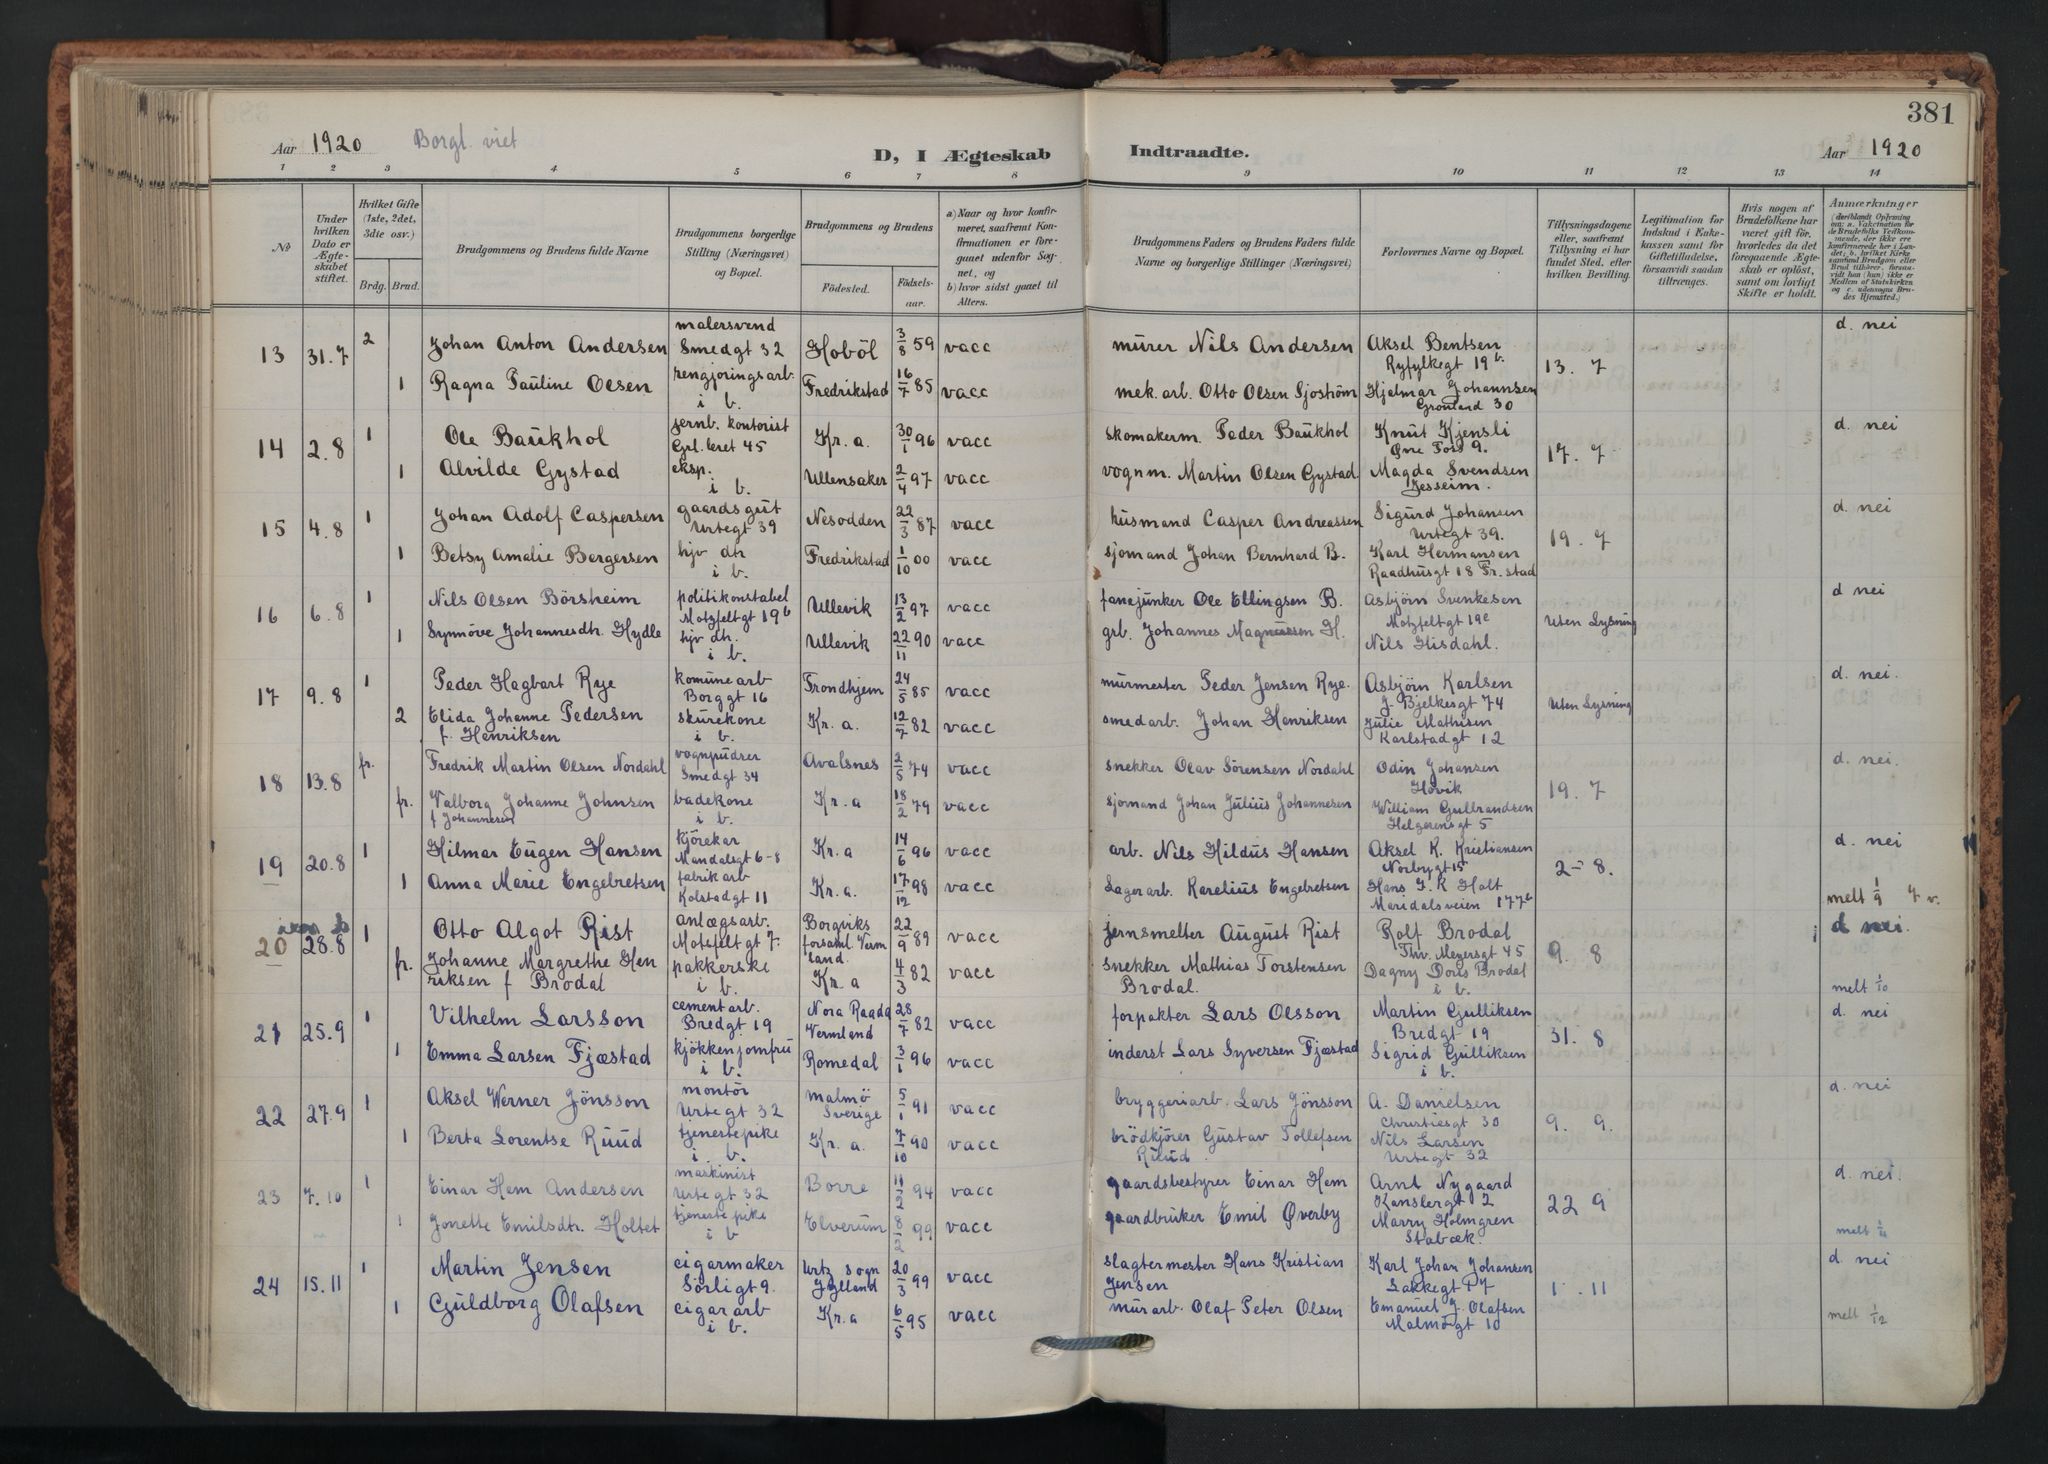 381
Aar 1920 Borgl. viet D, I Ægteskab Indtraadte. Aar 1920
1 2 3 4 5 6 7 8 9 10 11 12 13 14
No
Under hvilken Dato er Ægteskabet stiftet.
Hvilket Gifte (1ste, 2det, 3die osv.)
Brdg. Brud.
Brudgommens og Brudens fulde Navne
Brudgommens borgerlige Stilling (Næringsvei) og Bopæl.
Brudgommens og Brudens
Fødested. Fødselsaar.
a) Naar og hvor konfirmeret, saafremt Konfirmationen er foregaaet udenfor Sognet, og
b) hvor sidst gaaet til Alters.
Brudgommens Faders og Brudens Faders fulde Navne og borgerlige Stillinger (Næringsvei)
Forlovernes Navne og Bopæl.
Tillysningsdagene eller, saafremt Tillysning ei har fundet Sted, efter hvilken Bevilling.
Legitimation for Indskud i Enkekassen samt for Giftetilladelse, forsaavidt saadan tiltrænges.
Hvis nogen af Brudefolkene har været gift før, hvorledes da det foregaaende Ægteskab er opløst, samt om lovligt Skifte er holdt.
Anmærkninger
13 31.7 2 Johan Anton Andersen malersvend Smedgt 32 Hoböl 3/8 59 vacc murer Nils Andersen Aksel Bentsen Ryfylkegt 19b 13. 7 d. nei
1 Ragna Pauline Olsen rengjøringsarb. i b. Fredrikstad 16/7 85 vacc mek. arb. Otto Olsen Sjöström Hjalmar Johannsen Grønland 30
14 2.8 1 Ole Baukhol jernb. kontorist Grl. leret 45 Kr. a. 30/1 96 vacc skomakerm. Peder Baukhol Knut Kjensli Øne Foss 9. 17. 7 d. nei
1 Alvilde Gystad eksp. i b. Ullensaker 2/4 97 vacc vognm. Martin Olsen Gystad. Magda Svendsen Jesseim.
15 4.8 1 Johan Adolf Caspersen gaardsgut Urtegt 39 Nesodden 22/3 87 vacc husmand Casper Andreassen Sigurd Johansen Urtegt 39. 19. 7 d. nei
1 Betsy Amalie Bergersen hjv dtr i b. Fredrikstad 1/10 00 vacc sjømand Johan Bernhard B. Karl Hermansen Raadhusgt 18 Fr. stad
16 6.8 1 Nils Olsen Börsheim politikonstabel Motzfeltgt 19b Ullevik 13/2 97 vacc fanejunker Ole Ellingsen B. Asbjörn Svenkesen Motzfeltgt 19e uten Lysning d nei
1 Synnöve Johannesdh. Hydle hjv dh. i b. Ullevik 22/11 90 vacc grb. Johannes Magnussen H. Nils Hisdahl.
17 9.8 1 Peder Hagbart Rye komune arb Borggt 16 Trondhjem 24/5 85 vacc murmester Peder Jensen Rye. Asbjörn Karlsen J. Bjelkesgt 74 uten Lysning d. nei.
2 Elida Johanne Pedersen f. Henriksen skurekone i b. Kr. a. 12/7 82 vacc smedarb. Johan Henriksen Julie Mathisen Karlstadgt 12
18 13.8 fr. Fredrik Martin Olsen Nordahl vognpudser Smedgt 34 Avalsnes 2/5 74 vacc snekker Olav Sörensen Nordahl Odin Johansen Hövik 19. 7 d. nei.
fr. Valborg Johanne Johnsen f Johannesen badekone i b. Kr. a 18/2 79 vacc sjømand Johan Julius Johannesen William Gulbrandsen Helgesensgt 5
19 20.8 1 Hilmar Eugen Hansen kjörekar Mandalsgt 6-8 Kr. a 14/6 96 vacc arb. Nils Hildus Hansen Aksel K. Kristiansen Norbygt 15 2-8. d. nei
1 Anna Marie Engebretsen fabrikarb Kolstadgt 11 Kr. a. 17/12 98 vacc Lagerarb. Karelius Engebretsen Hans J. R Holt Maridalsveien 177b melt 1/9
20 28.8 1 Otto Algot Rist anlægsarb. Motsfeltgt 7. Borgviks forsaml. Vermland. 22/9 89 vacc jernsmelter August Rist Rolf Brodal Thv. Meyersgt 45 9. 8 d nei.
fr. Johanne Margrethe Henriksen f Brodal pakkerske i b. Kr. a 4/3 82 vacc snekker Mathias Torstensen Brodal. Dagny Doris Brodal i b. melt 1/10
21 25.9 1 Vilhelm Larsson cementarb. Bredgt 19 Nora Raada Vermland 28/7 82 vacc forpakter Lars Olsson Martin Gulliksen Bredgt 19 31. 8 d. nei
1 Emma Larsen Fjæstad kjökkenjomfru i b. Romedal 3/1 96 vacc inderst Lars Syversen Fjæstad Sigrid Gulliksen i b.
22 27.9 1 Aksel Werner Jönsson montör Urtegt 32 Malmö Sverige 5/1 91 vacc bryggeriarb. Lars Jönsson A. Danielsen Christiesgt 30 9. 9. d. nei
1 Berta Lorentse Ruud tjenestepike i b. Kr. a. 7/10 90 vacc brödkjörer Gustav Tollefsen Ruud Nils Larsen Urtegt 32
23 7.10 1 Einar Hem Andersen maskinist Urtegt 32 Borre 11/2 94 vacc gaardsbestyrer Einar Hem Arnt Nygaard Kanslergt 2 22 9 d. nei.
1 Jonette Emilsdtr. Holtet tjenestepike i b Elverum 8/2 99 vacc gaardbruker Emil Øverby Marry Holmgren Stabæk. melt 1/11
24 15.11 1 Martin Jensen cigarmaker Sörligt 9. Urtz sogn Jylland 20/3 99 vacc slagtermester Hans Kristian Jensen Karl Johan Johansen Lakkegt 7 1. 11 d. nei
1 Guldborg Olafsen cigararb i b. Kr. a 6/5 95 vacc murarb. Olaf Peter Olsen Emanuel J. Olafsen Malmögt 10 melt 1/12